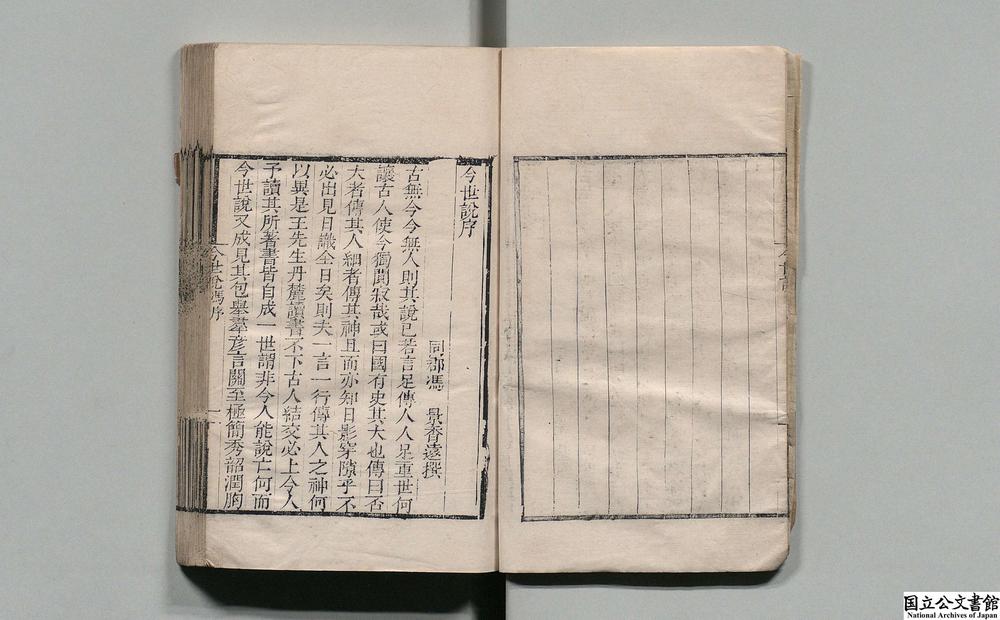 今世說
今世說序
同郡馮 景香遠撰
古無今今無人則其說已若言足傳人人足重世何
讓古人使今獨聞寂哉或曰國有史其大也傳曰否
大者傳其人細者傳其神且而亦知日影穿隙乎不
必出見日識全日矣則夫一言一行傳其人之神何
以異是王先生丹麓讀書不下古人結交必上今人
予讀其所著書皆自成一世謂非今人能說亡何而
今世說又成見其包舉羣彥言關至極簡秀韶潤胸
今世說馮序
一
国立公文書館
National Archives of Japan